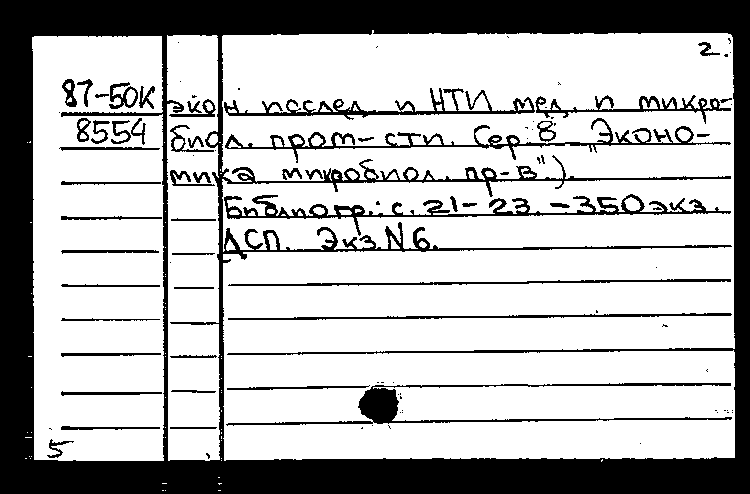 2.
87-50К экон. исслед. и НТИ мед. и микро-
8554 биол. пром-сти. Сер. 8 „Эконо-
мика микробиол. пр-в").
Библиогр.: с. 21-23. - 350 экз.
ДСП. Экз. N 6.
5